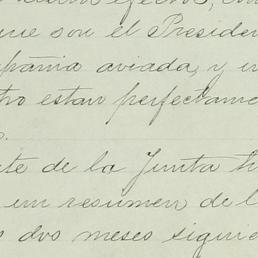 efectos,
que son el Presiden
pañia aviada, y
tro estan perfectame
te de la Junta
un resumen de l
dos meses siguie